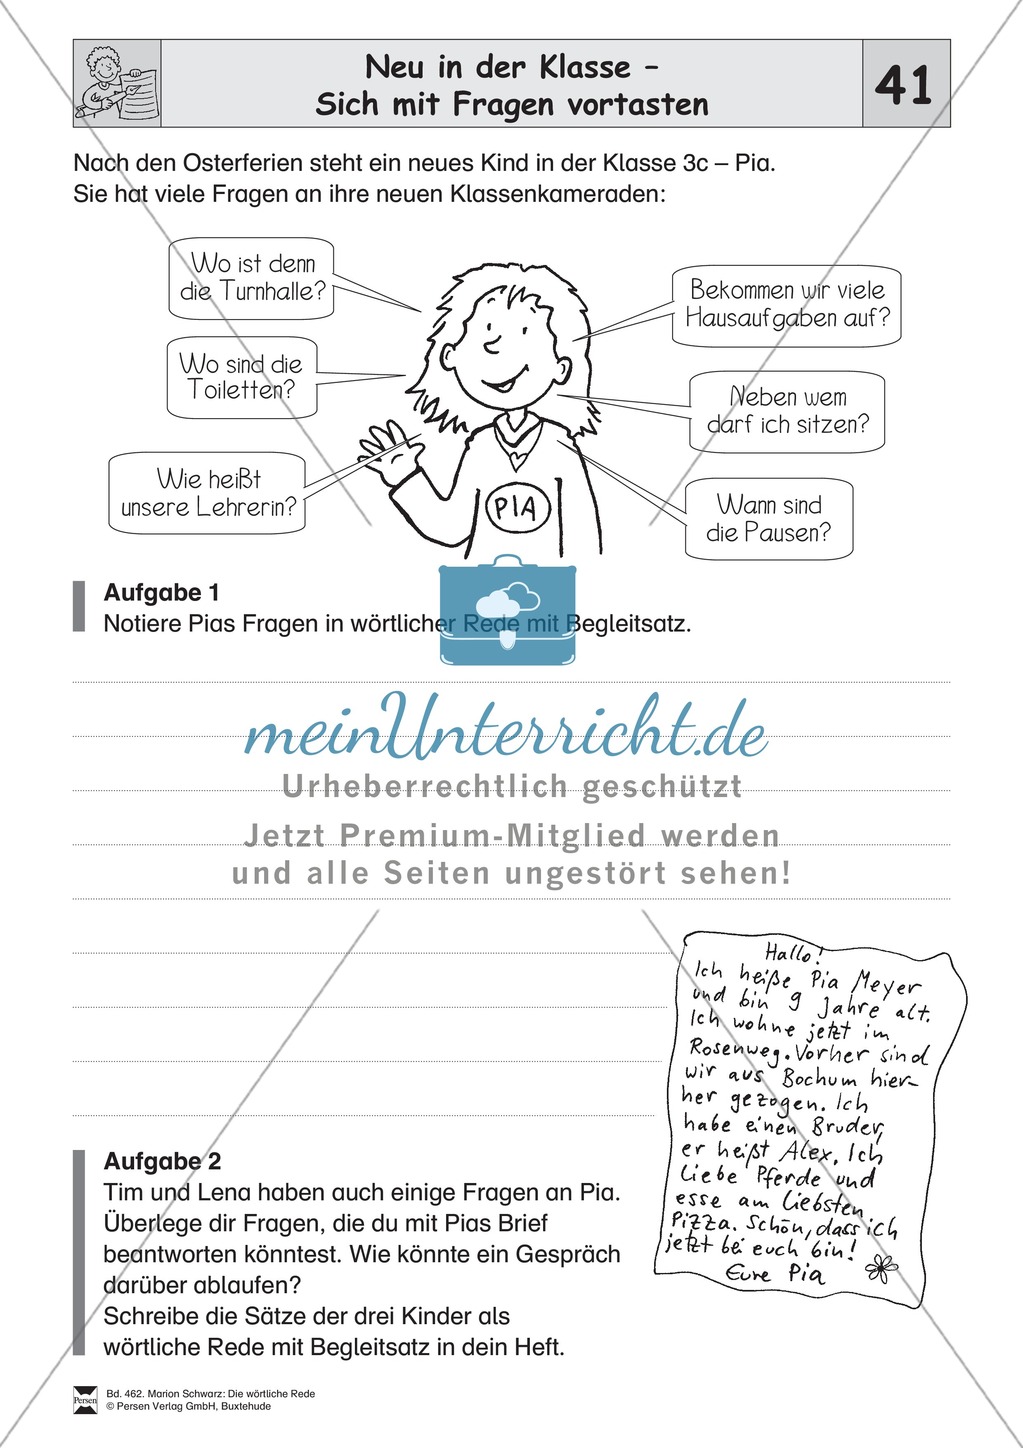 Neu in der Klasse –
Sich mit Fragen vortasten
41
Nach den Osterferien steht ein neues Kind in der Klasse 3c – Pia.
Sie hat viele Fragen an ihre neuen Klassenkameraden:
Wo ist denn
die Turnhalle?
Bekommen wir viele
Hausaufgaben auf?
Wo sind die
Toiletten?
Neben wem
darf ich sitzen?
Wie heißt
unsere Lehrerin?
Wann sind
die Pausen?
PIA
Aufgabe 1
Notiere Pias Fragen in wörtlicher Rede mit Begleitsatz.
meinUnterricht.de
Urheberrechtlich geschützt
Jetzt Premium-Mitglied werden
und alle Seiten ungestört sehen!
Hallo!
Ich heiße Pia Meyer
und bin 9 Jahre alt.
Ich wohne jetzt im
Rosenweg. Vorher sind
wir aus Bochum hier-
her gezogen. Ich
habe einen Bruder,
er heißt Alex. Ich
liebe Pferde und
esse am liebsten
Pizza. Schön, dass ich
jetzt bei euch bin!
Eure Pia
Aufgabe 2
Tim und Lena haben auch einige Fragen an Pia.
Überlege dir Fragen, die du mit Pias Brief
beantworten könntest. Wie könnte ein Gespräch
darüber ablaufen?
Schreibe die Sätze der drei Kinder als
wörtliche Rede mit Begleitsatz in dein Heft.
Persen
Bd. 462. Marion Schwarz: Die wörtliche Rede
© Persen Verlag GmbH, Buxtehude